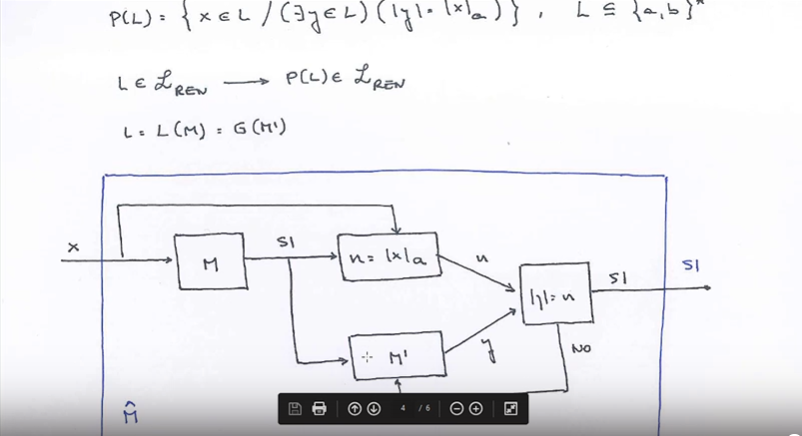 P(L) = { x ∈ L / (∃y ∈ L) ( |y| = |x|ₐ ) } , L ⊆ {a, b}*
L ∈ ℒREN → P(L) ∈ ℒREN
L = L(M) = G(M')
x
M
SI
n = |x|ₐ
n
|y| = n
SI
SI
M'
y
NO
M̂
4 / 6